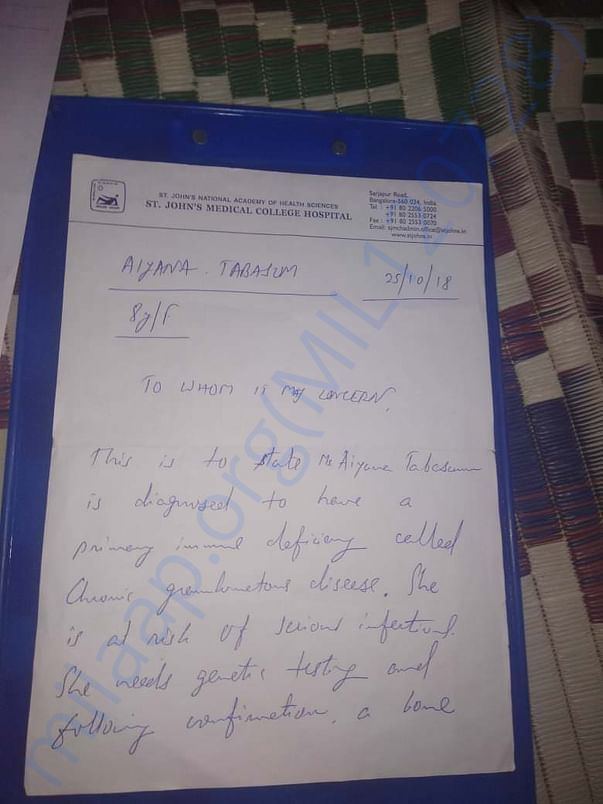 ST. JOHN'S NATIONAL ACADEMY OF HEALTH SCIENCES
ST. JOHN'S MEDICAL COLLEGE HOSPITAL
Sarjapur Road,
Bangalore-560 034, India
Tel : +91 80 2206 5000
+91 80 2553 0724
Fax : +91 80 2553 0070
Email: sjmchadmin.office@stjohns.in
www.stjohns.in
AIYANA . TABASUM
25/10/18
8y/F
TO WHOM IT MAY CONCERN,
This is to state Ms Aiyana Tabasum
is diagnosed to have a
primary immune deficiency called
Chronic granulomatous disease. She
is at risk of serious infections.
She needs genetic testing and
following confirmation, a bone
milaap.org(MIL